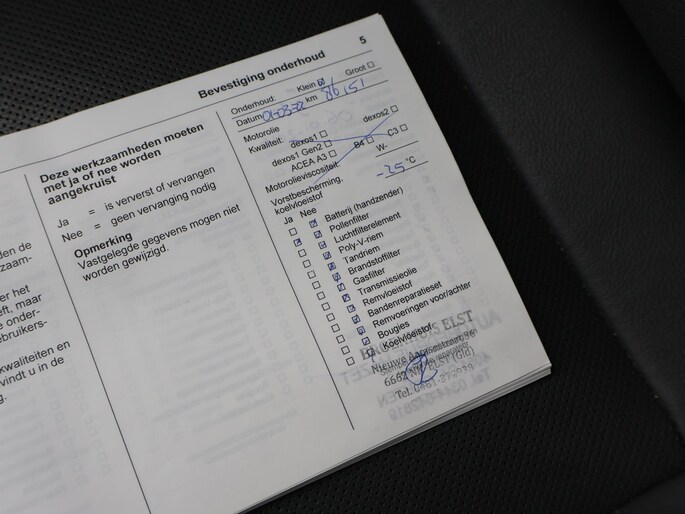 5
Bevestiging onderhoud
den de
zaam-
er het
eft, maar
e onder-
ebruikers-
kwaliteiten en
vindt u in de
g.
Deze werkzaamheden moeten
met ja of nee worden
aangekruist
Ja = is ververst of vervangen
Nee = geen vervanging nodig
Opmerking
Vastgelegde gegevens mogen niet
worden gewijzigd.
Onderhoud: Klein Groot
Datum 01-03-22 km 86151
Motorolie
Kwaliteit: dexos1 dexos2
dexos1 Gen2 B4 C3
ACEA A3
Motorolieviscositeit: W-
Vorstbescherming,
koelvloeistof -25 °C
Ja Nee
Batterij (handzender)
Pollenfilter
Luchtfilterelement
Poly-V-riem
Tandriem
Brandstoffilter
Gasfilter
Transmissieolie
Remvloeistof
Bandenreparatieset
Remvoeringen voor/achter
Bougies
Koelvloeistof
ELST
Nieuwe Aamsestraat
6662 ELST (Gld)
Tel. 0481-